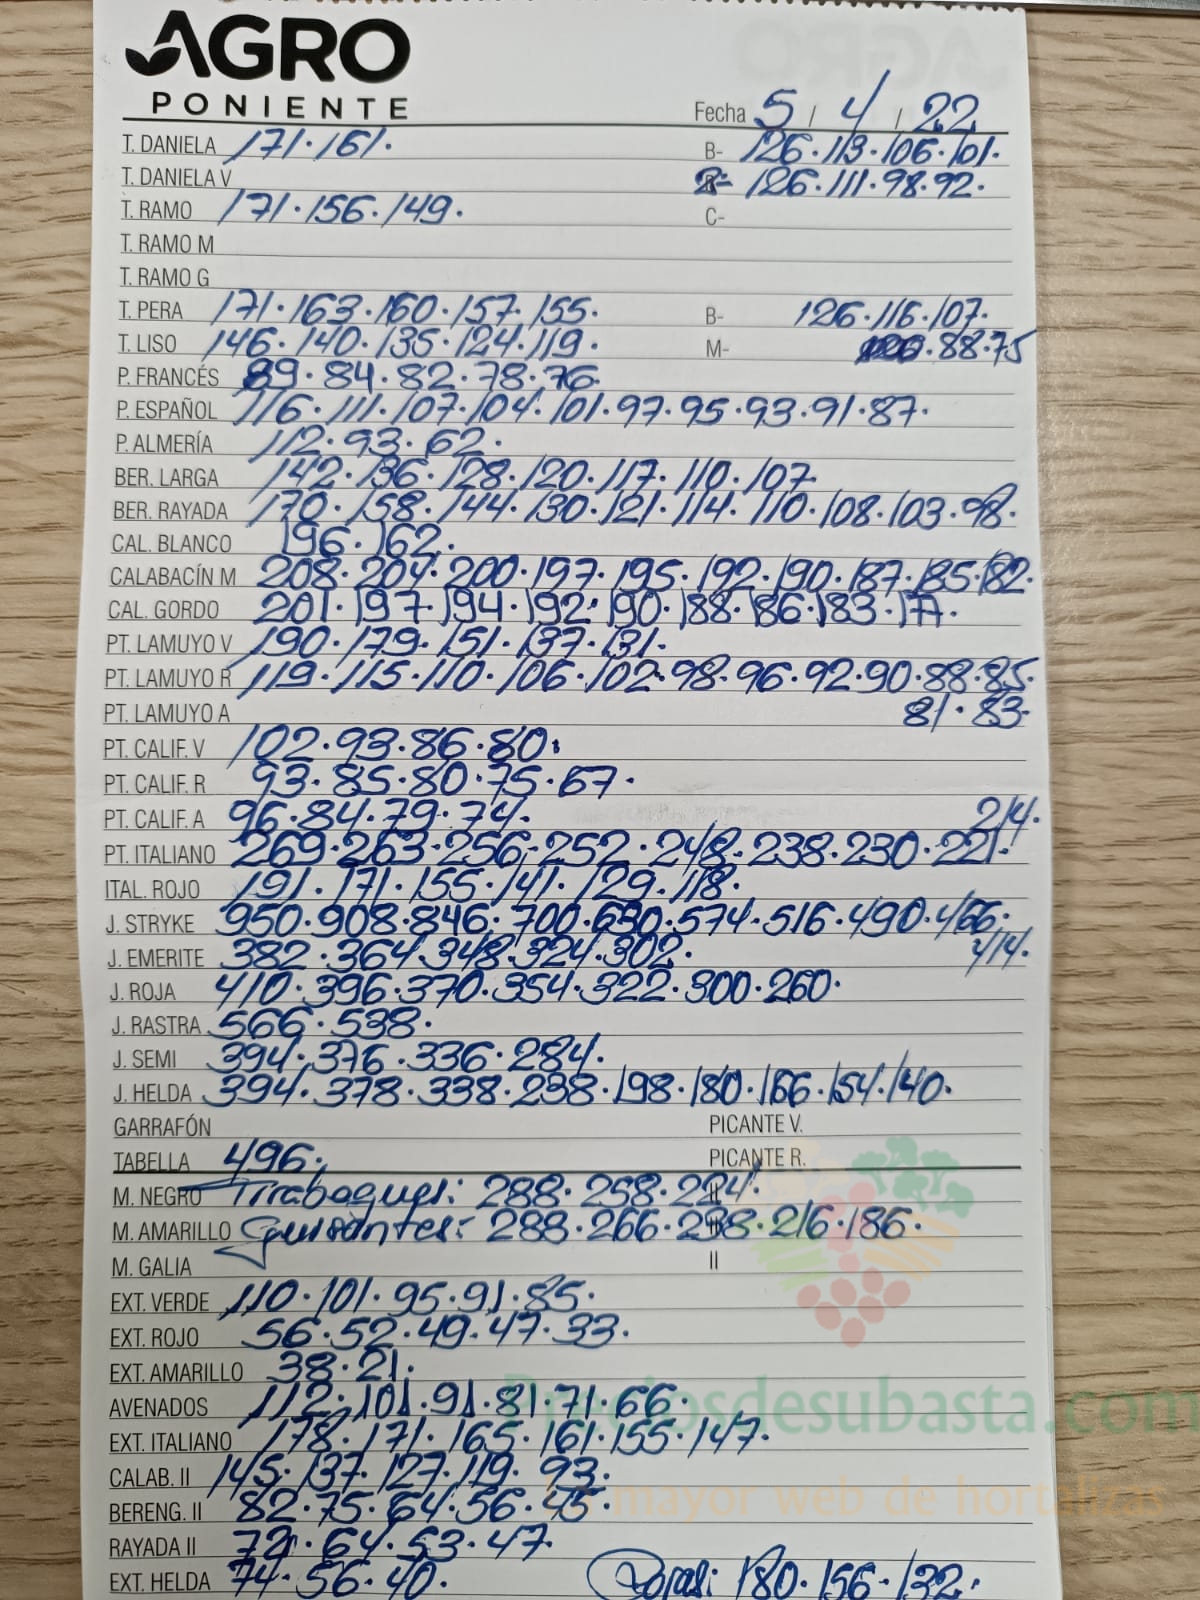 AGRO
PONIENTE
Fecha 5 / 4 / 22
T. DANIELA 171.161. B- 126.113.106.101.
T. DANIELA V 126.111.98.92.
T. RAMO 171.156.149. C-
T. RAMO M
T. RAMO G
T. PERA 171.163.160.157.155. B- 126.116.107.
T. LISO 146.140.135.124.119. M- .88.75
P. FRANCÉS 89.84.82.78.76.
P. ESPAÑOL 116.111.107.104.101.97.95.93.91.87.
P. ALMERÍA 112.93.62.
BER. LARGA 142.136.128.120.117.110.107.
BER. RAYADA 170.158.144.130.121.114.110.108.103.98.
CAL. BLANCO 196.162.
CALABACÍN M 208.204.200.197.195.192.190.187.185.182.
CAL. GORDO 201.197.194.192.190.188.186.183.177.
PT. LAMUYO V 190.179.151.137.131.
PT. LAMUYO R 119.115.110.106.102.98.96.92.90.88.85.
PT. LAMUYO A 81.83.
PT. CALIF. V 102.93.86.80.
PT. CALIF. R 93.85.80.75.67.
PT. CALIF. A 96.84.79.74. 214.
PT. ITALIANO 269.263.256.252.248.238.230.221.
ITAL. ROJO 191.171.155.141.129.118.
J. STRYKE 950.908.846.700.630.574.516.490.466.
J. EMERITE 382.364.348.324.302. 414.
J. ROJA 410.396.370.354.322.300.260.
J. RASTRA 566.538.
J. SEMI 394.376.336.284.
J. HELDA 394.378.338.238.198.180.166.154.140.
GARRAFÓN PICANTE V.
TABELLA 496. PICANTE R.
M. NEGRO Tirabeques: 288.258.224. II
M. AMARILLO Guisantes: 288.266.238.216.186. II
M. GALIA II
EXT. VERDE 110.101.95.91.85.
EXT. ROJO 56.52.49.47.33.
EXT. AMARILLO 38.21.
AVENADOS 112.101.91.81.71.66.
Preciosdesubasta.com
EXT. ITALIANO 178.171.165.161.155.147.
CALAB. II 145.137.127.119.93.
mayor web de hortalizas
BERENG. II 82.75.64.56.45.
RAYADA II 72.64.53.47.
EXT. HELDA 74.56.40. 180.156.132.